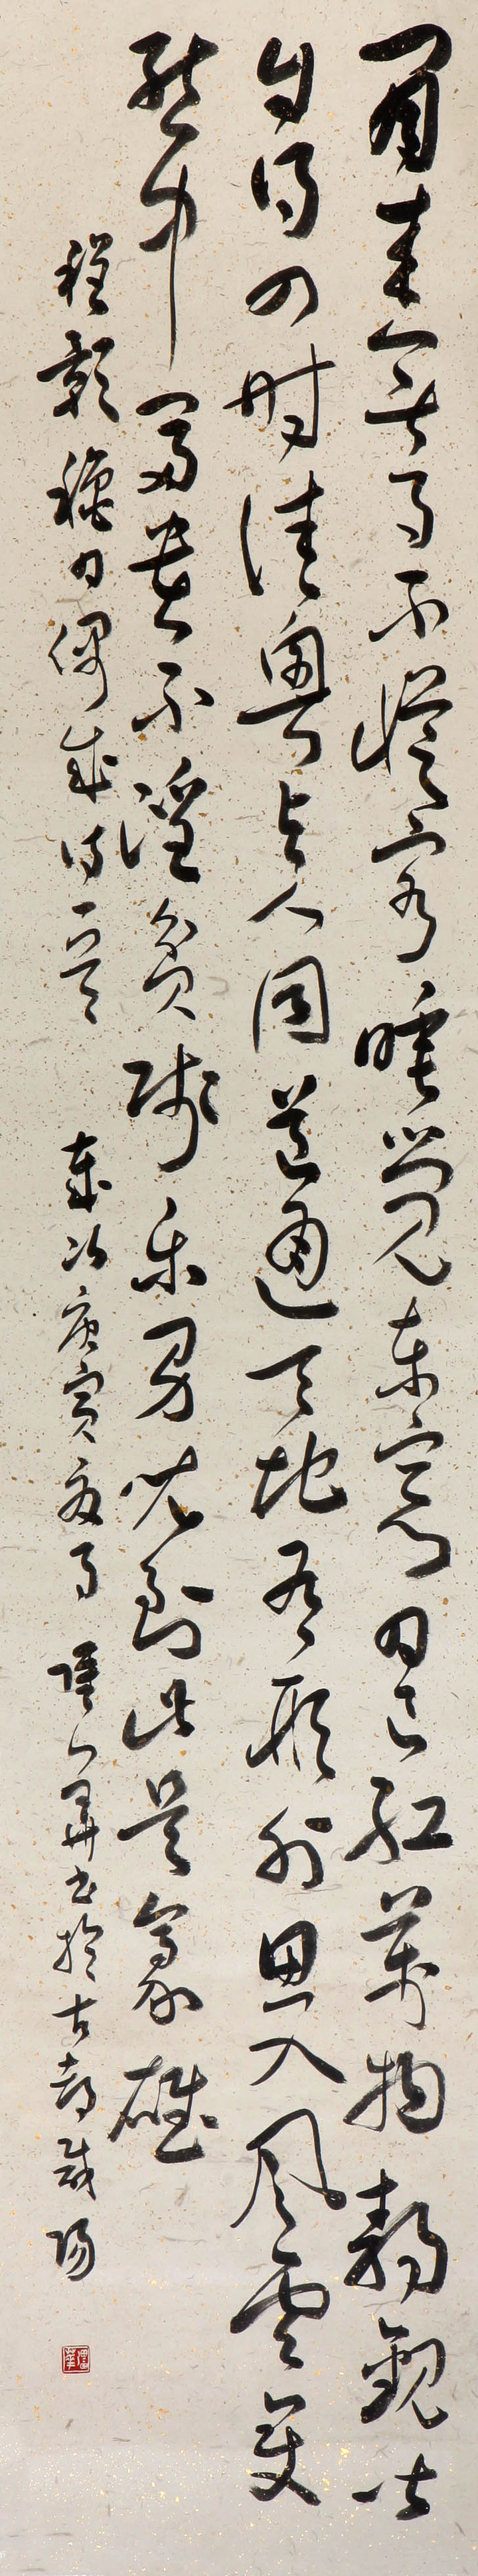 閒來無事不從容睡覺東窗日已紅萬物靜觀皆
自得四時佳興與人同道通天地有形外思入風雲變
態中富貴不淫貧賤樂男兒到此是豪雄
程顥秋日偶成詩一首 歲次庚寅夏月 書於古都咸陽